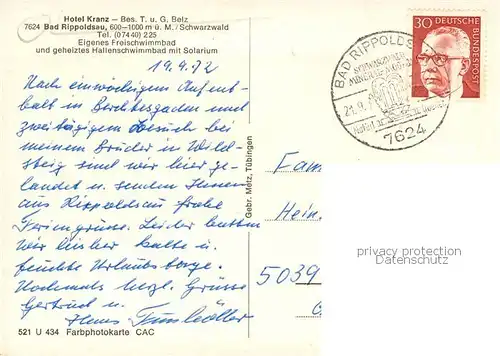 Hotel Kranz — Bes. T. u. G. Belz
7624 Bad Rippoldsau, 600–1000 m ü. M. / Schwarzwald
Tel. (07440) 225
Eigenes Freischwimmbad
und geheiztes Hallenschwimmbad mit Solarium
19.9.72
Nach einwöchigem Aufent-
halt in Berchtesgaden und
zweitägigem Besuch bei
meinem Bruder in Wild-
steig sind wir hier ge-
landet u. senden Ihnen
aus Rippoldsau frohe
Feriengrüsse. Leider hatten
wir bisher kalte u.
feuchte Urlaubstage.
Nochmals herzl. Grüsse
Gertrud u.
521 U 434 Farbphotokarte CAC
Gebr. Metz, Tübingen
30 DEUTSCHE
BUNDESPOST
BAD RIPPOLDS
21.9.
7624
Fam
Hein
5039
privacy protection
www.ansichtskartenversand.com